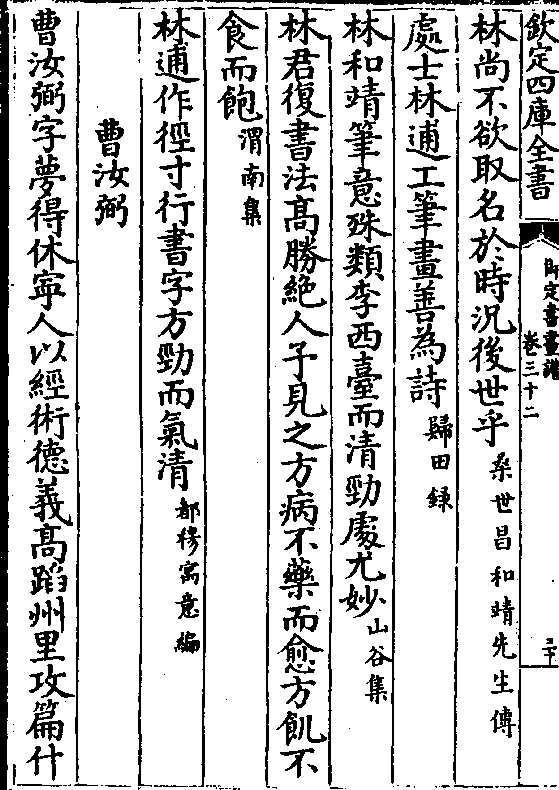 欽定四庫全書
御定書畫譜
卷三十二
三十
林尚不欲取名於時況後世乎桑世昌和靖先生傳
處士林逋工筆畫善為詩歸田録
林和靖筆意殊類李西臺而清勁處尤妙山谷集
林君復書法髙勝絶人予見之方病不藥而愈方飢不
食而飽渭南集
林逋作徑寸行書字方勁而氣清都穆寓意編
曹汝弼
曹汝弼字夢得休寜人以經術德義髙蹈州里攻篇什